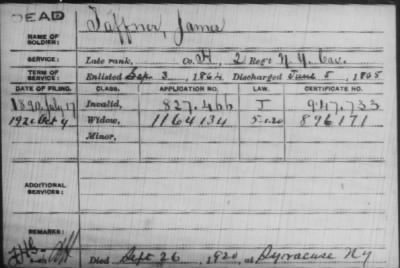 DEAD
NAME OF SOLDIER: Taffner, James
SERVICE: Late rank, Co. H, 2 Reg't N. Y. Cav.
TERM OF SERVICE: Enlisted Sep. 3, 1864 Discharged June 5, 1865
DATE OF FILING. CLASS. APPLICATION NO. LAW. CERTIFICATE NO.
1890, July 17 Invalid, 827.466 J 947.733
1920 Oct 4 Widow, 1164134 5-1-20 896171
Minor,
ADDITIONAL SERVICES:
REMARKS:
Died Sept 26, 1920, at Syracuse NY